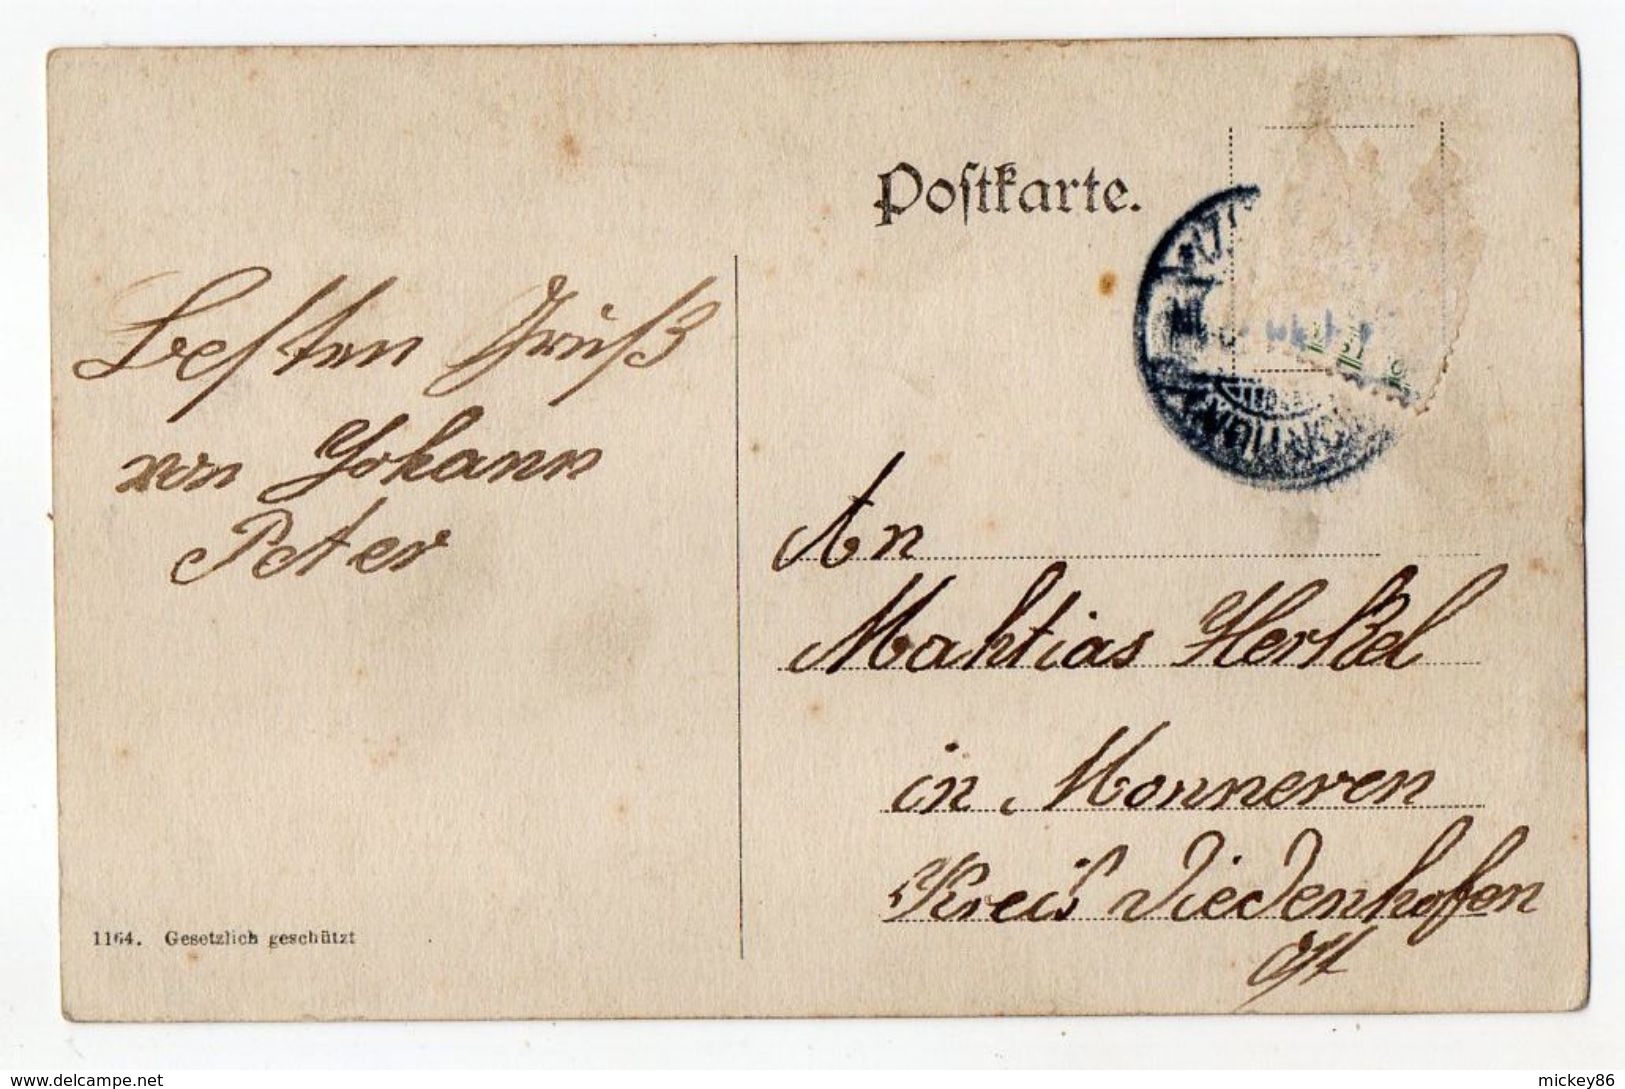 Postkarte.
Besten Gruß
von Johann
Peter
An
Mahtias Herkel
in Monneren
Kreis Diedenhofen
Ost
1164. Gesetzlich geschützt
www.delcampe.net
mickey86